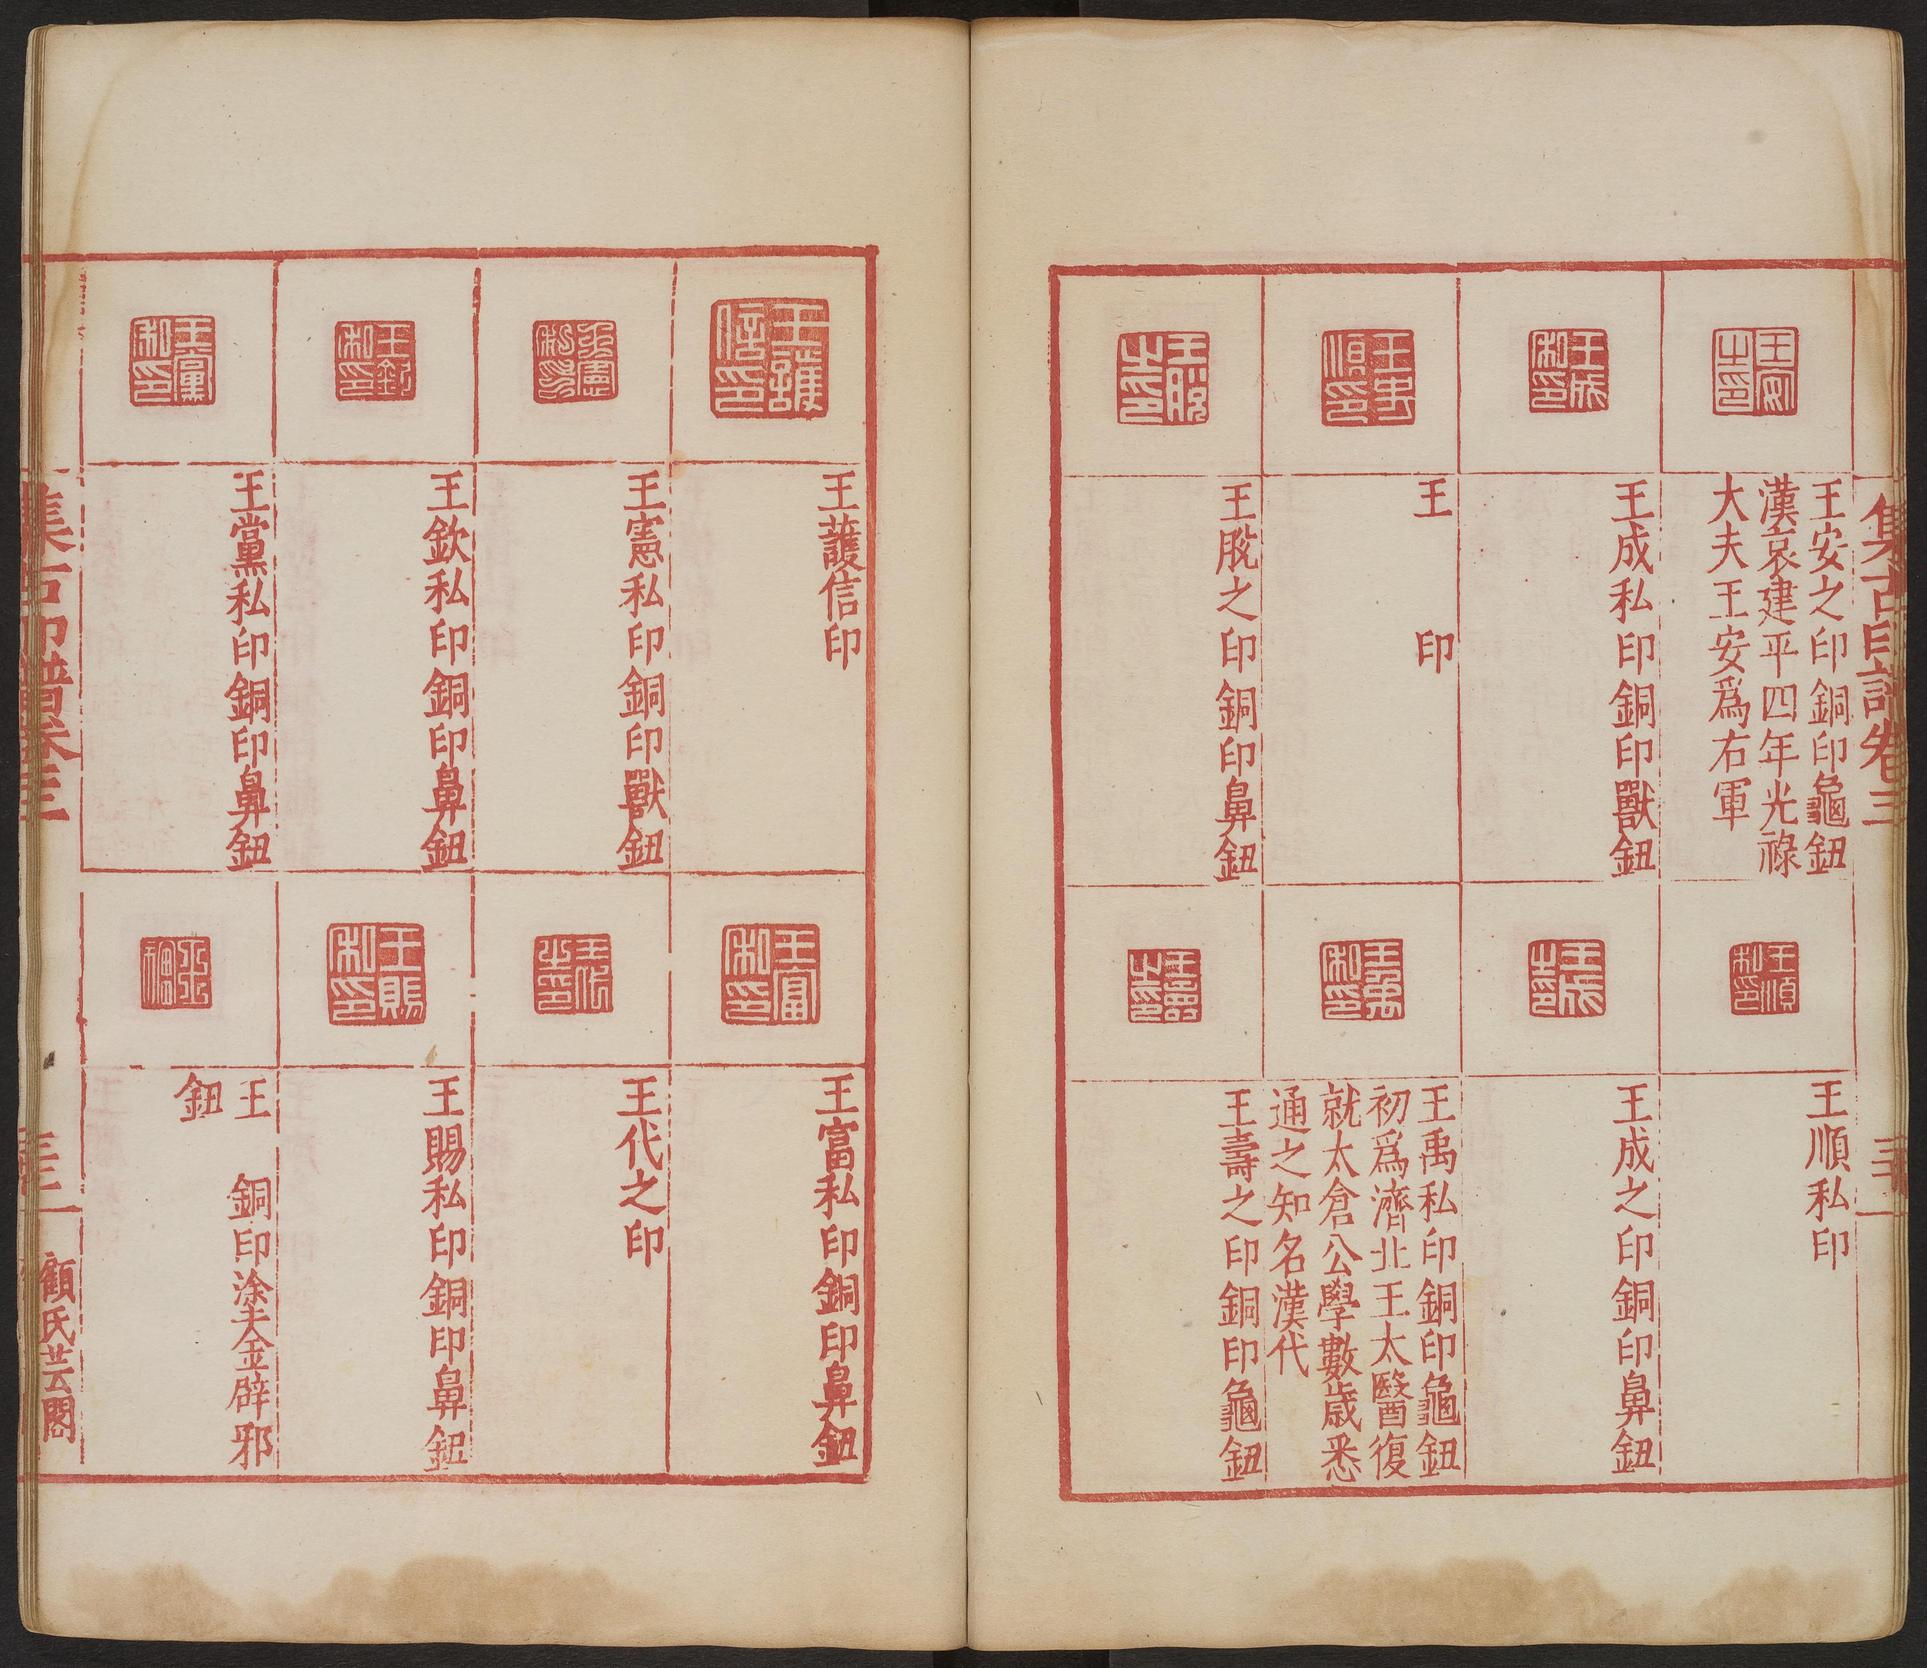 集古印譜卷三
王安之印銅印龜鈕
漢哀建平四年光祿
大夫王安爲右軍
王成私印銅印獸鈕
王　印
王脫之印銅印鼻鈕
王順私印
王成之印銅印鼻鈕
王禹私印銅印龜鈕
初爲濟北王太醫復
就太倉公學數歲悉
通之知名漢代
王壽之印銅印龜鈕
王護信印
王憲私印銅印獸鈕
王欽私印銅印鼻鈕
王黨私印銅印鼻鈕
王富私印銅印鼻鈕
王代之印
王賜私印銅印鼻鈕
王　銅印塗金辟邪
鈕
集古印譜卷三
顧氏芸閣